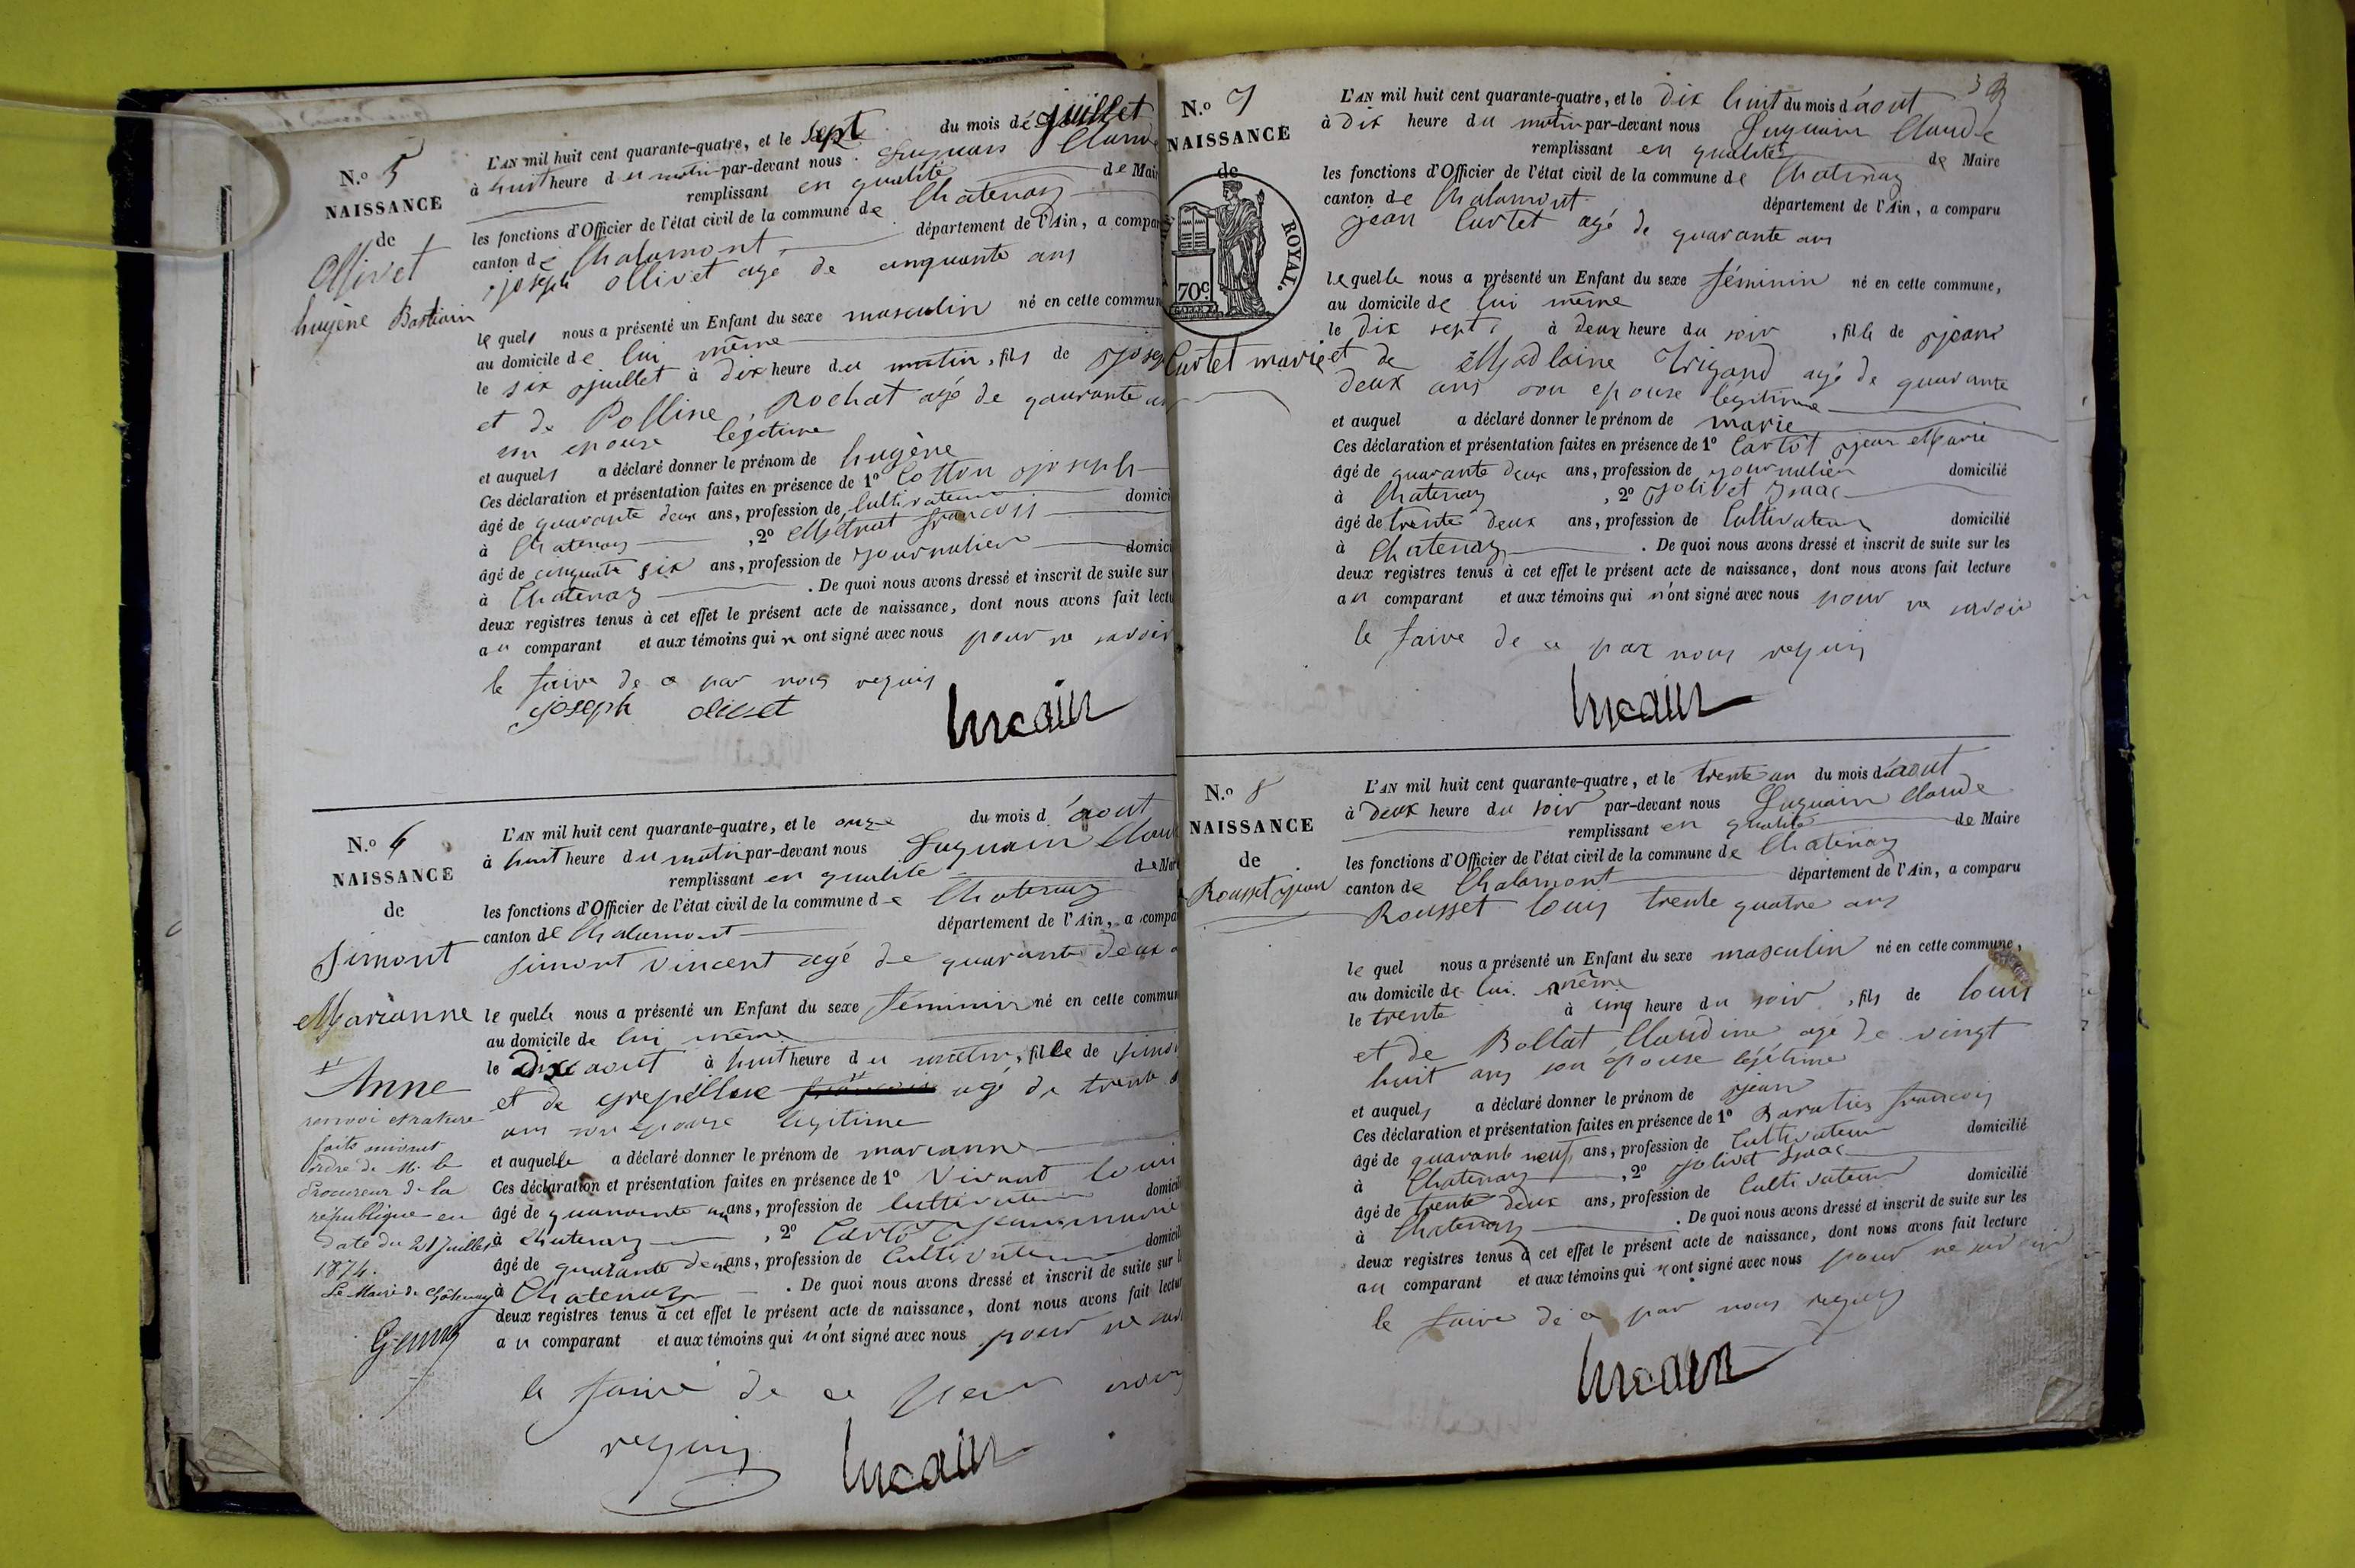 N.o 5
NAISSANCE
de
Ollivet
hugène Bastiain
L'AN mil huit cent quarante-quatre, et le sept du mois de juillet
à huit heure du matin par-devant nous Luquain Claude
remplissant en qualité de Mair
les fonctions d'Officier de l'état civil de la commune de Chatenay
canton de Chalamont département de l'Ain, a compar
joseph ollivet agé de cinquante ans
le quel nous a présenté un Enfant du sexe masculin né en cette commun
au domicile de lui même
le six juillet à dix heure du matin, fils de josep
et de Polline Rochat agé de quarante
son epouse legitime
et auquel a déclaré donner le prénom de hugène
Ces déclaration et présentation faites en présence de 1º Cotton joseph
âgé de quarante deux ans, profession de Cultivateur domici
à Chatenay, 2º Métrat francois
âgé de cinquante six ans, profession de journalier domici
à Chatenay. De quoi nous avons dressé et inscrit de suite sur
deux registres tenus à cet effet le présent acte de naissance, dont nous avons fait lectu
au comparant et aux témoins qui n ont signé avec nous pour ne savoir
le faire de ce par nous requis
joseph olivet
N.o 6
NAISSANCE
de
Simont
Marianne
Anne
renvoi et rature
faits suivant
ordre de Mr. le
Procureur de la
république en
date du 21 juillet
1874.
Le Maire de Châtenay
L'AN mil huit cent quarante-quatre, et le onze du mois d'aout
à huit heure du matin par-devant nous Luquain Claud
remplissant en qualité de Mai
les fonctions d'Officier de l'état civil de la commune de Chatenay
canton de Chalamont département de l'Ain, a compa
simont Vincent agé de quarante deux
le quelle nous a présenté un Enfant du sexe féminin né en cette commun
au domicile de lui même
le Dix aout à huit heure du matin, fille de simon
et de agé de trente
ans son epouse legitime
et auquelle a déclaré donner le prénom de marianne
Ces déclaration et présentation faites en présence de 1º Vivand loui
âgé de quarante ans, profession de Cultivateur domicil
à Chatenay, 2º Cartot jean marie
âgé de quarante deux ans, profession de Cultivateur domicil
à Chatenay. De quoi nous avons dressé et inscrit de suite sur l
deux registres tenus à cet effet le présent acte de naissance, dont nous avons fait lectur
au comparant et aux témoins qui n'ont signé avec nous pour ne
le faire de ce par nous
requis
N.o 7
NAISSANCE
de
ROYAL.
70c
Curtet marie
L'AN mil huit cent quarante-quatre, et le dix huit du mois d'aout
à dix heure du matin par-devant nous Luquain Claude
remplissant en qualité de Maire
les fonctions d'Officier de l'état civil de la commune de Chatenay
canton de Chalamont département de l'Ain, a comparu
jean Curtet agé de quarante ans
le quelle nous a présenté un Enfant du sexe féminin né en cette commune,
au domicile de lui même
le dix sept à deux heure du soir, fille de jean
et de Madlaine Trigand agé de quarante
deux ans son epouse legitime
et auquel a déclaré donner le prénom de marie
Ces déclaration et présentation faites en présence de 1º Cartot jean Marie
âgé de quarante deux ans, profession de journalier domicilié
à Chatenay, 2º jolivet jsaac
âgé de trente deux ans, profession de Cultivateur domicilié
à Chatenay. De quoi nous avons dressé et inscrit de suite sur les
deux registres tenus à cet effet le présent acte de naissance, dont nous avons fait lecture
au comparant et aux témoins qui n'ont signé avec nous pour ne savoir
le faire de ce par nous requis
N.o 8
NAISSANCE
de
Rousset jean
L'AN mil huit cent quarante-quatre, et le trente un du mois d'aout
à deux heure du soir par-devant nous Luquain Claude
remplissant en qualité de Maire
les fonctions d'Officier de l'état civil de la commune de Chatenay
canton de Chalamont département de l'Ain, a comparu
Rousset louis trente quatre ans
le quel nous a présenté un Enfant du sexe masculin né en cette commune,
au domicile de lui même
le trente à cinq heure du soir, fils de louis
et de Bollat Claudine agé de vingt
huit ans son épouse légitime
et auquel a déclaré donner le prénom de jean
Ces déclaration et présentation faites en présence de 1º Baratier francois
âgé de quarante neuf ans, profession de Cultivateur domicilié
à Chatenay, 2º jolivet jsaac
âgé de trente deux ans, profession de Cultivateur domicilié
à Chatenay. De quoi nous avons dressé et inscrit de suite sur les
deux registres tenus à cet effet le présent acte de naissance, dont nous avons fait lecture
au comparant et aux témoins qui n ont signé avec nous pour ne savoir
le faire de ce par nous requis